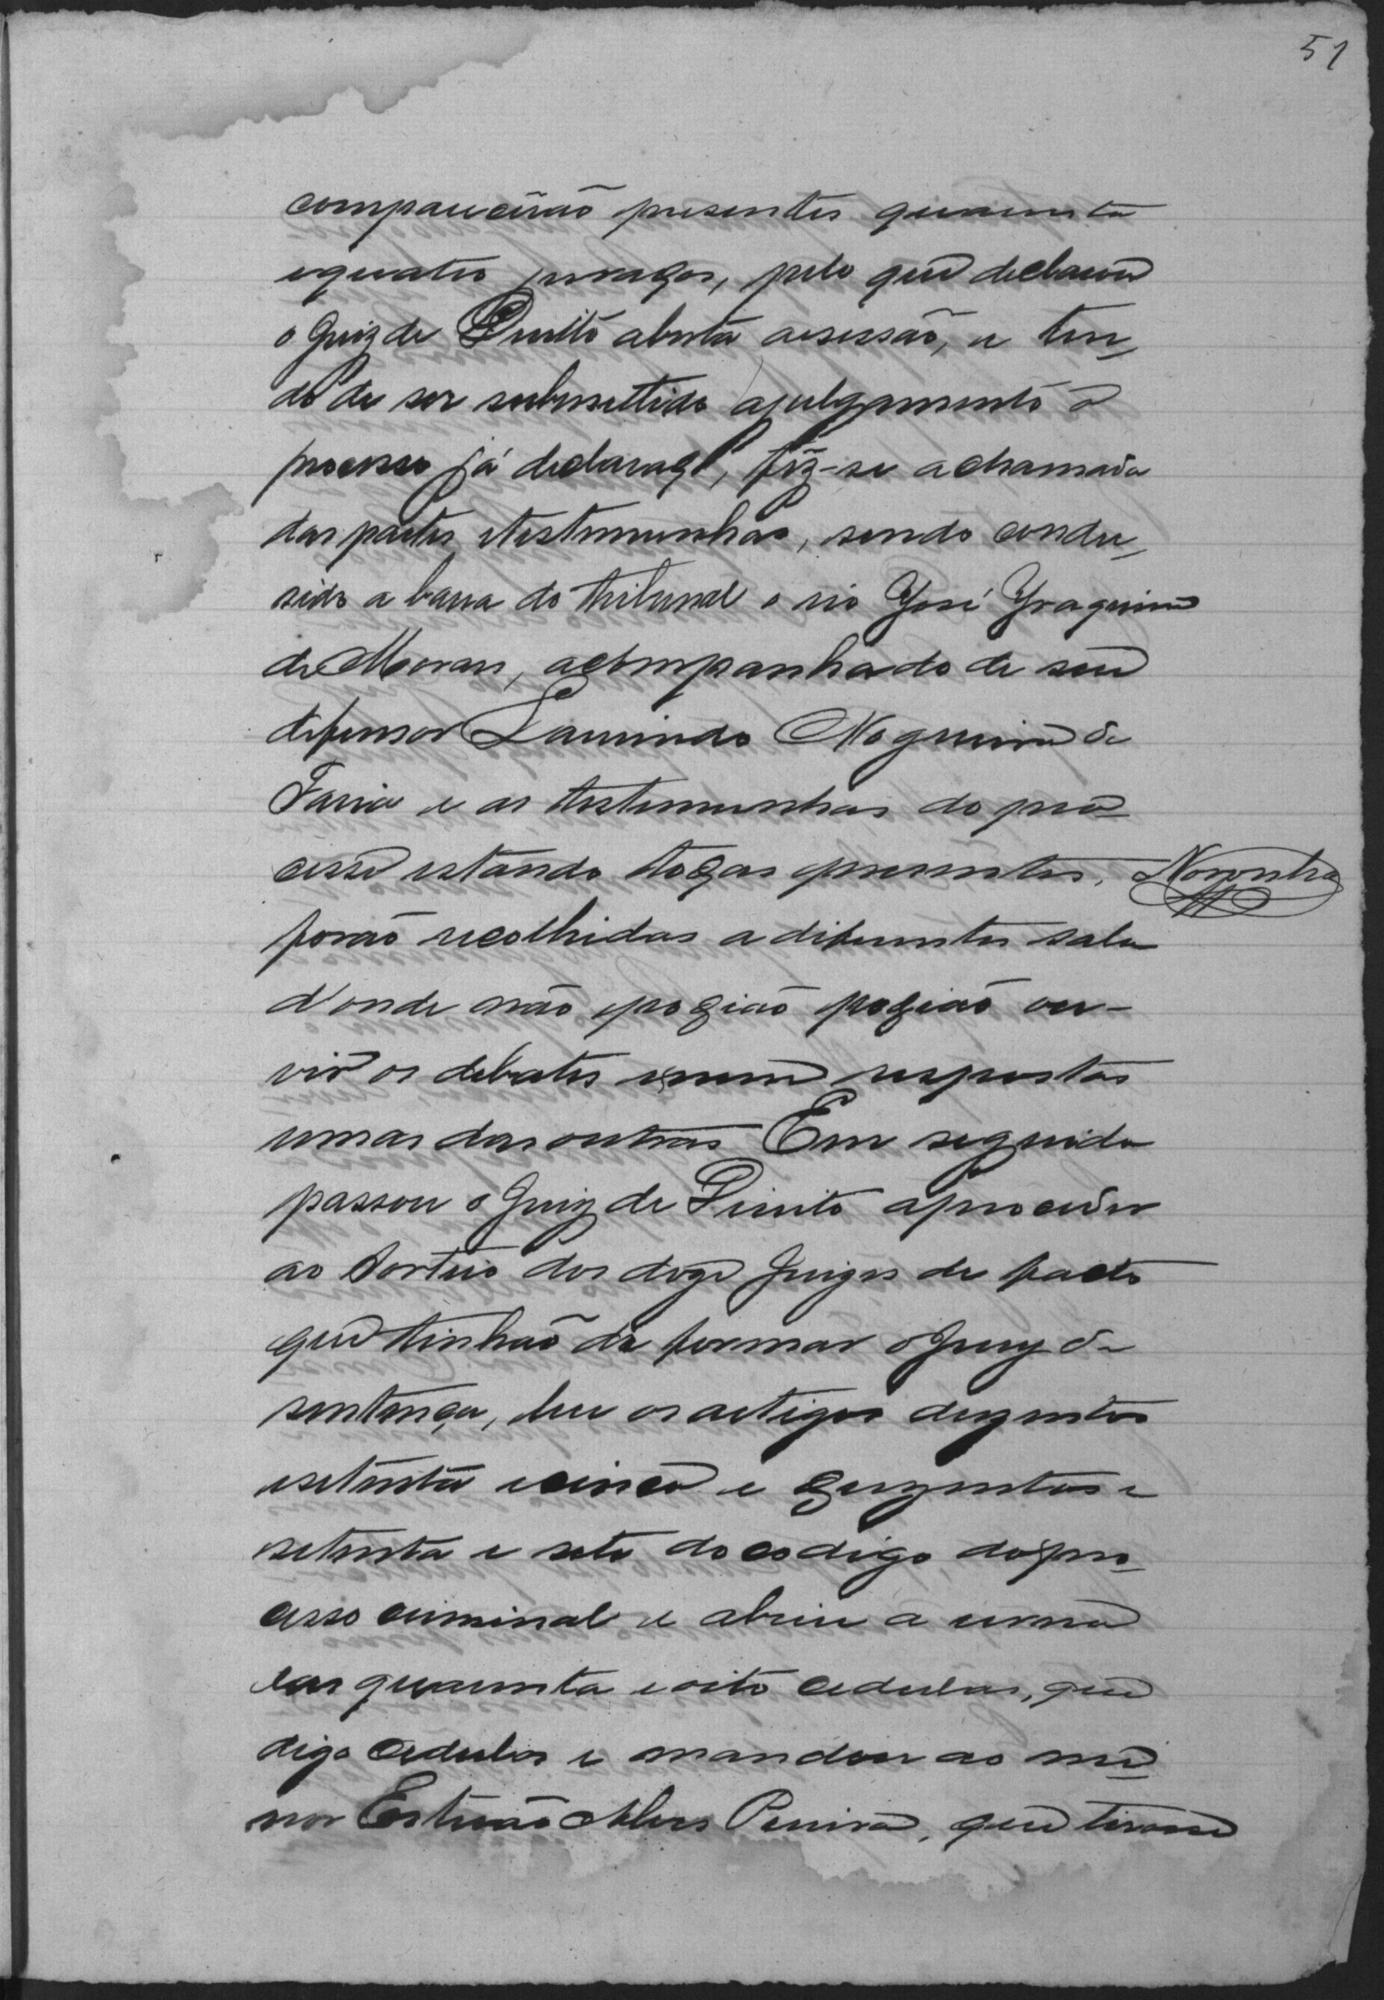 51
comparecirão presentes quarenta
equatro jurados, pelo que declarou
o Juiz de Direito aberta asessão, e ten-
do de ser submettido ajulgamento o
processo já declarado, fêz-se achamada
das partes etestemunhas, sendo condu-
sido a barra do tribunal o réo José Joaquim
de Moraes, acompanhado de seu
defensor Laurindo Nogueira de
Faria e as testemunhas do pro-
cesso estando todas presentes,
Noronha
forão recolhidas a diferentes salas
d'onde não podião podião ou-
vir os debates e nem respostas
umas das outras Em seguida
passou o Juiz de Direito aproceder
ao Sorteio dos doze Juizes de facto
que tinhão de formar o Jury de
sentença, leu os artigos duzentos
esetenta ecinco e duzentos e
setenta e sete do codigo do pro-
cesso criminal e abriu a urna
das quarenta e oito cedulas, que
digo cedulas e mandou ao me-
nor Estevão Alves Pereira, que tirasse